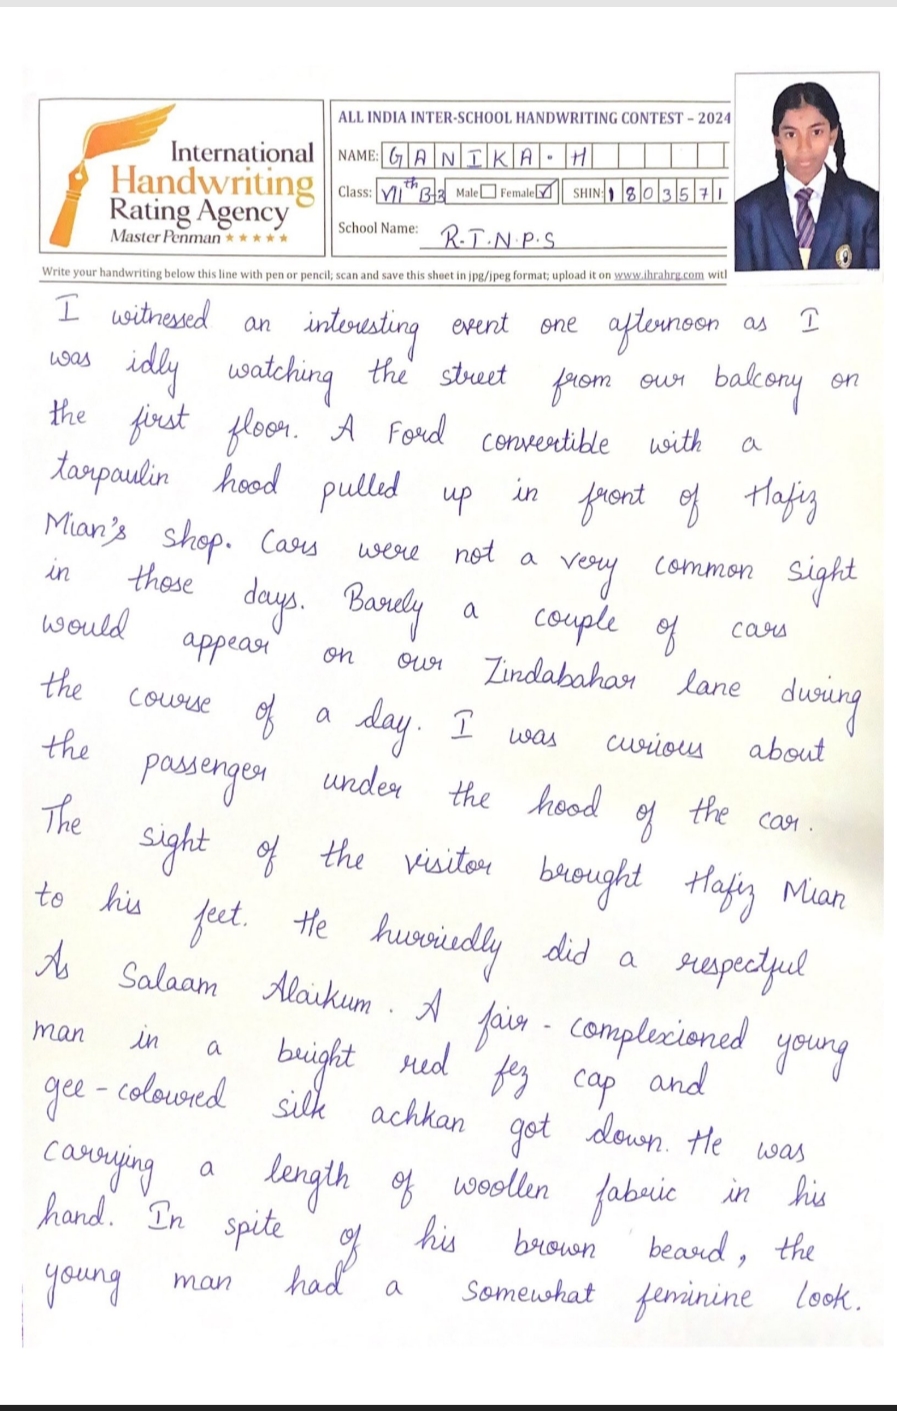 ALL INDIA INTER-SCHOOL HANDWRITING CONTEST – 2024
International
Handwriting
Rating Agency
Master Penman
NAME: GANIKA.H
Class: VIIth B-3 Male Female SHIN: 1803571
School Name: R.T.N.P.S
Write your handwriting below this line with pen or pencil; scan and save this sheet in jpg/jpeg format; upload it on www.ihrahrg.com witl
I witnessed an interesting event one afternoon as I
was idly watching the street from our balcony on
the first floor. A Ford convertible with a
tarpaulin hood pulled up in front of Hafiz
Mian's shop. Cars were not a very common sight
in those days. Barely a couple of cars
would appear on our Zindabahar lane during
the course of a day. I was curious about
the passenger under the hood of the car.
The sight of the visitor brought Hafiz Mian
to his feet. He hurriedly did a respectful
As Salaam Alaikum. A fair-complexioned young
man in a bright red fez cap and
gee-coloured silk achkan got down. He was
carrying a length of woollen fabric in his
hand. In spite of his brown beard, the
young man had a somewhat feminine look.